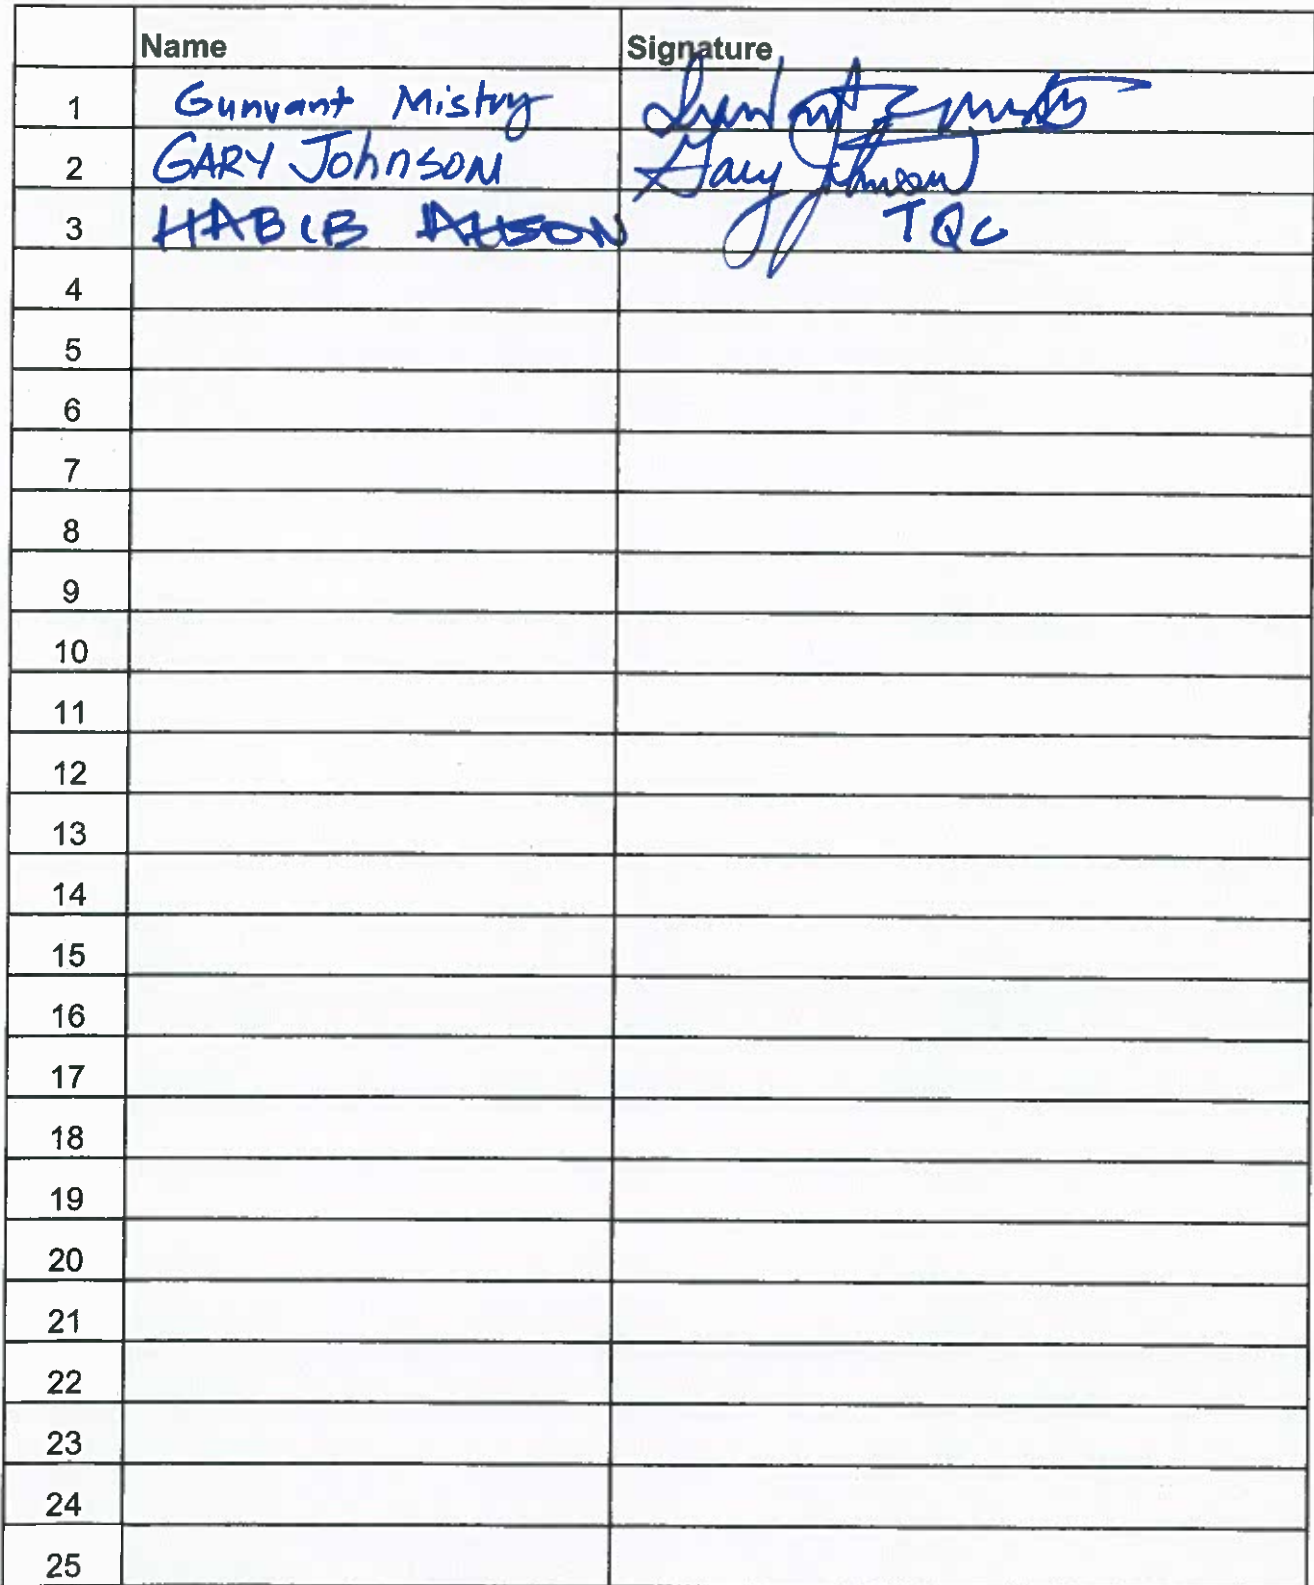 Name Signature
1 Gunvant Mistry
2 GARY Johnson Gary Johnson
3 HABIB TQC
4
5
6
7
8
9
10
11
12
13
14
15
16
17
18
19
20
21
22
23
24
25